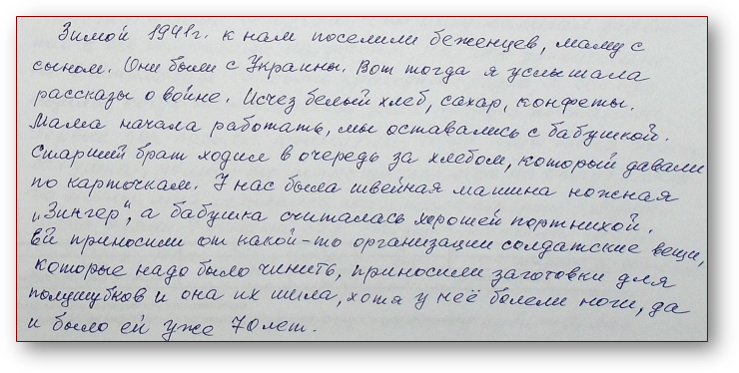 Зимой 1941г. к нам поселили беженцев, маму с
сыном. Они были с Украины. Вот тогда я услышала
рассказы о войне. Исчез белый хлеб, сахар, конфеты.
Мама начала работать, мы оставались с бабушкой.
Старший брат ходил в очередь за хлебом, который давали
по карточкам. У нас была швейная машина ножная
„Зингер“, а бабушка считалась хорошей портнихой.
Ей приносили от какой-то организации солдатские вещи,
которые надо было чинить, приносили заготовки для
полушубков и она их шила, хотя у неё болели ноги, да
и было ей уже 70 лет.